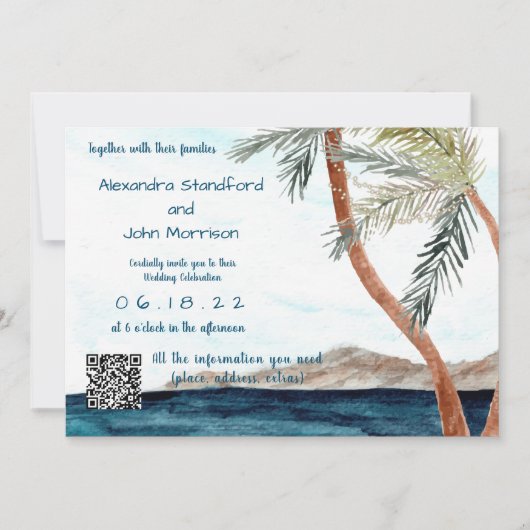 Together with their families
Alexandra Standford
and
John Morrison
Cordially invite you to their
Wedding Celebration
06.18.22
at 6 o'clock in the afternoon
All the information you need
(place, address, extras)